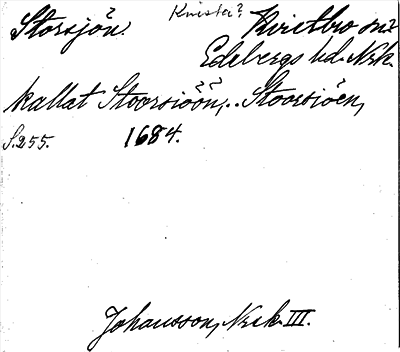 Storsjön. Knista? Kvistbro sn?
Edsbergs hd. Nrk.
kallat Stoorsiöön,.. Stoorsiöen,
S.255. 1684.
Johansson, Nrk III.